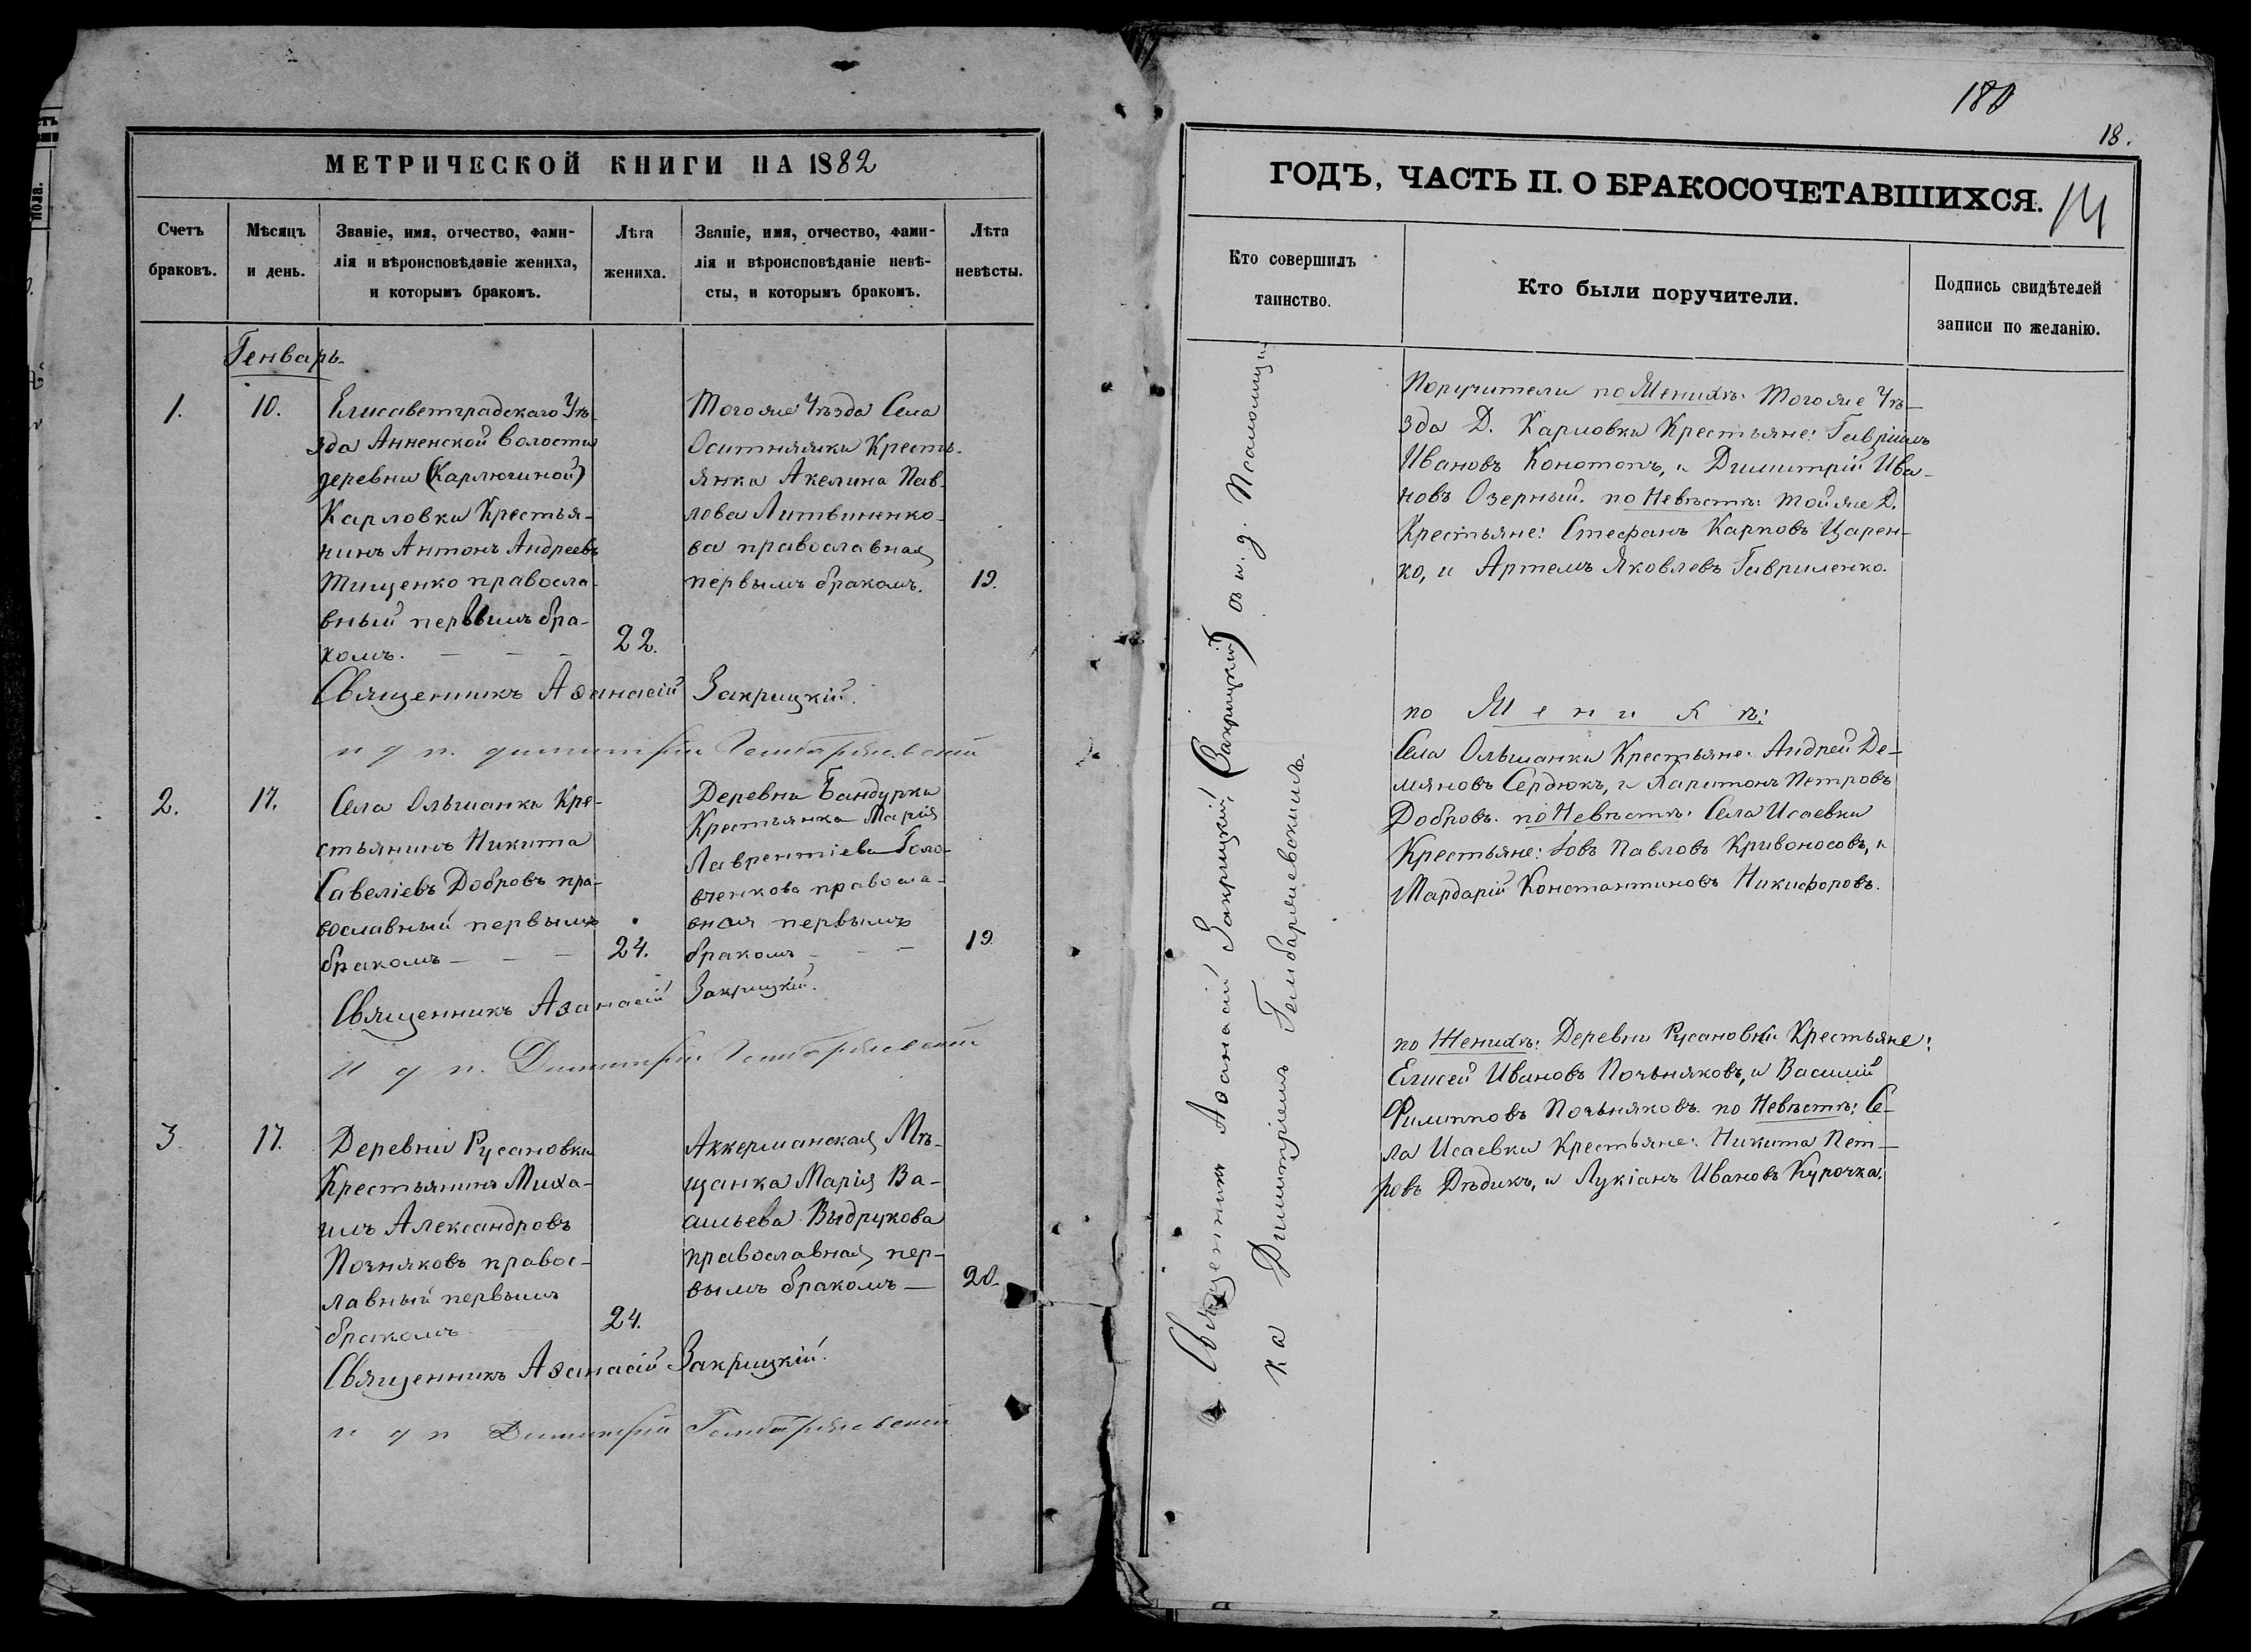 МЕТРИЧЕСКОЙ КНИГИ НА 1882
Счетъ браковъ.
Мѣсяцъ и день.
Званіе, имя, отчество, фами-
лія и вѣроисповѣданіе жениха,
и которымъ бракомъ.
Лѣта жениха.
Званіе, имя, отчество, фами-
лія и вѣроисповѣданіе невѣ-
сты, и которымъ бракомъ.
Лѣта невѣсты.
Генварь
1.
10.
Елисаветградскаго Уѣ-
зда Анненской волости
деревни (Карлюгиной)
Карловки Крестья-
нинъ Антонъ Андреевъ
Тищенко правосла-
вный первымъ бра-
комъ.
22.
Тогоже Уѣзда Села
Оситняжки Кресть-
янка Акелина Пав-
лова Литвиненко-
ва православная
первымъ бракомъ.
19.
Священникъ Аѳанасій Закрицкій.
и д п. Димитрій Гембаржевский
2.
17.
Села Ольшанки Кре-
стьянинъ Никита
Савеліевъ Добровъ пра-
вославный первымъ
бракомъ
24.
Деревни Бандурки
Крестьянка Марія
Лаврентіева Голо-
вченкова правосла-
вная первымъ
бракомъ
19
Священникъ Аѳанасій Закрицкій.
и д п. Димитрій Гембаржевский
3
17.
Деревни Русановки
Крестьянинъ Миха-
илъ Александровъ
Почняковъ правос-
лавный первымъ
бракомъ
24.
Аккерманская Мѣ-
щанка Марія Ва-
сильева Выдрукова
православная пер-
вымъ бракомъ
20.
Священникъ Аѳанасій Закрицкій.
и д п Димитрій Гембаржевский
180
18.
ГОДЪ, ЧАСТЬ II. О БРАКОСОЧЕТАВШИХСЯ.
14
Кто совершилъ
таинство.
Кто были поручители.
Подпись свидѣтелей
записи по желанію.
Священникъ Аѳанасій Закрицкій, (Закрицкій) съ и. д. Псаломщи-
ка Димитріемъ Гембаржевскимъ.
Поручители по Женихѣ: Тогоже Уѣ-
зда Д. Карловки Крестьяне: Гавріилъ
Ивановъ Конотопъ, и Димитрій Ива-
новъ Озерный. по Невѣстѣ: Тойже Д.
Крестьяне: Стефанъ Карповъ Царен-
ко, и Артемъ Яковлевъ Гавриленко.
по Женихѣ:
Села Ольшанки Крестьяне: Андрей Де-
мяновъ Сердюкъ, и Харитонъ Петровъ
Добровъ. по Невѣстѣ: Села Исаевки
Крестьяне: Іовъ Павловъ Кривоносовъ, и
Мардарій Константиновъ Никифоровъ.
по Женихѣ: Деревни Русановки Крестьяне:
Елисей Ивановъ Почьняковъ, и Василій
Филипповъ Почьняковъ. по Невѣстѣ: Се-
ла Исаевки Крестьяне: Никита Пет-
ровъ Дѣдикъ, и Лукіанъ Ивановъ Курочка.